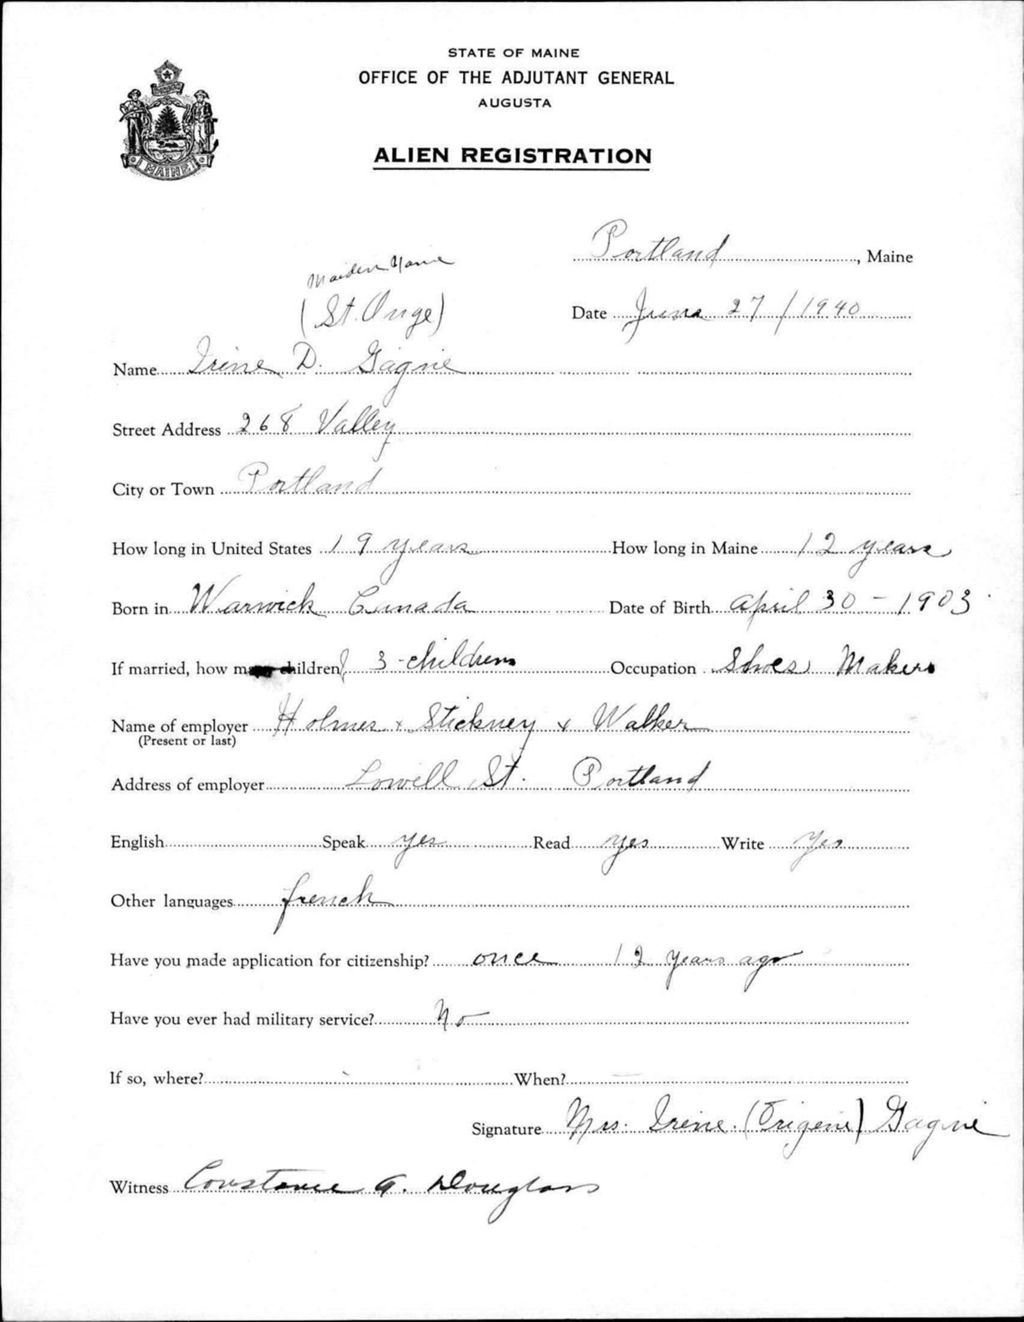 STATE OF MAINE
OFFICE OF THE ADJUTANT GENERAL
AUGUSTA
ALIEN REGISTRATION
MAINE
Portland, Maine
Maiden Name
(St. Onge)
Date June 27 / 1940
Name Irene D. Gagne
Street Address 268 Valley
City or Town Portland
How long in United States 19 years How long in Maine 12 years
Born in Warwick Canada Date of Birth April 30 - 1903
If married, how many children 3 - children Occupation Shoes Makers
Name of employer Holmes + Stickney + Walker
(Present or last)
Address of employer Lowell St. Portland
English Speak yes Read yes Write yes
Other languages french
Have you made application for citizenship? once 12 years ago
Have you ever had military service? No
If so, where? When? —
Signature Mrs. Irene (Origene) Gagne
Witness Constance A. Douglass